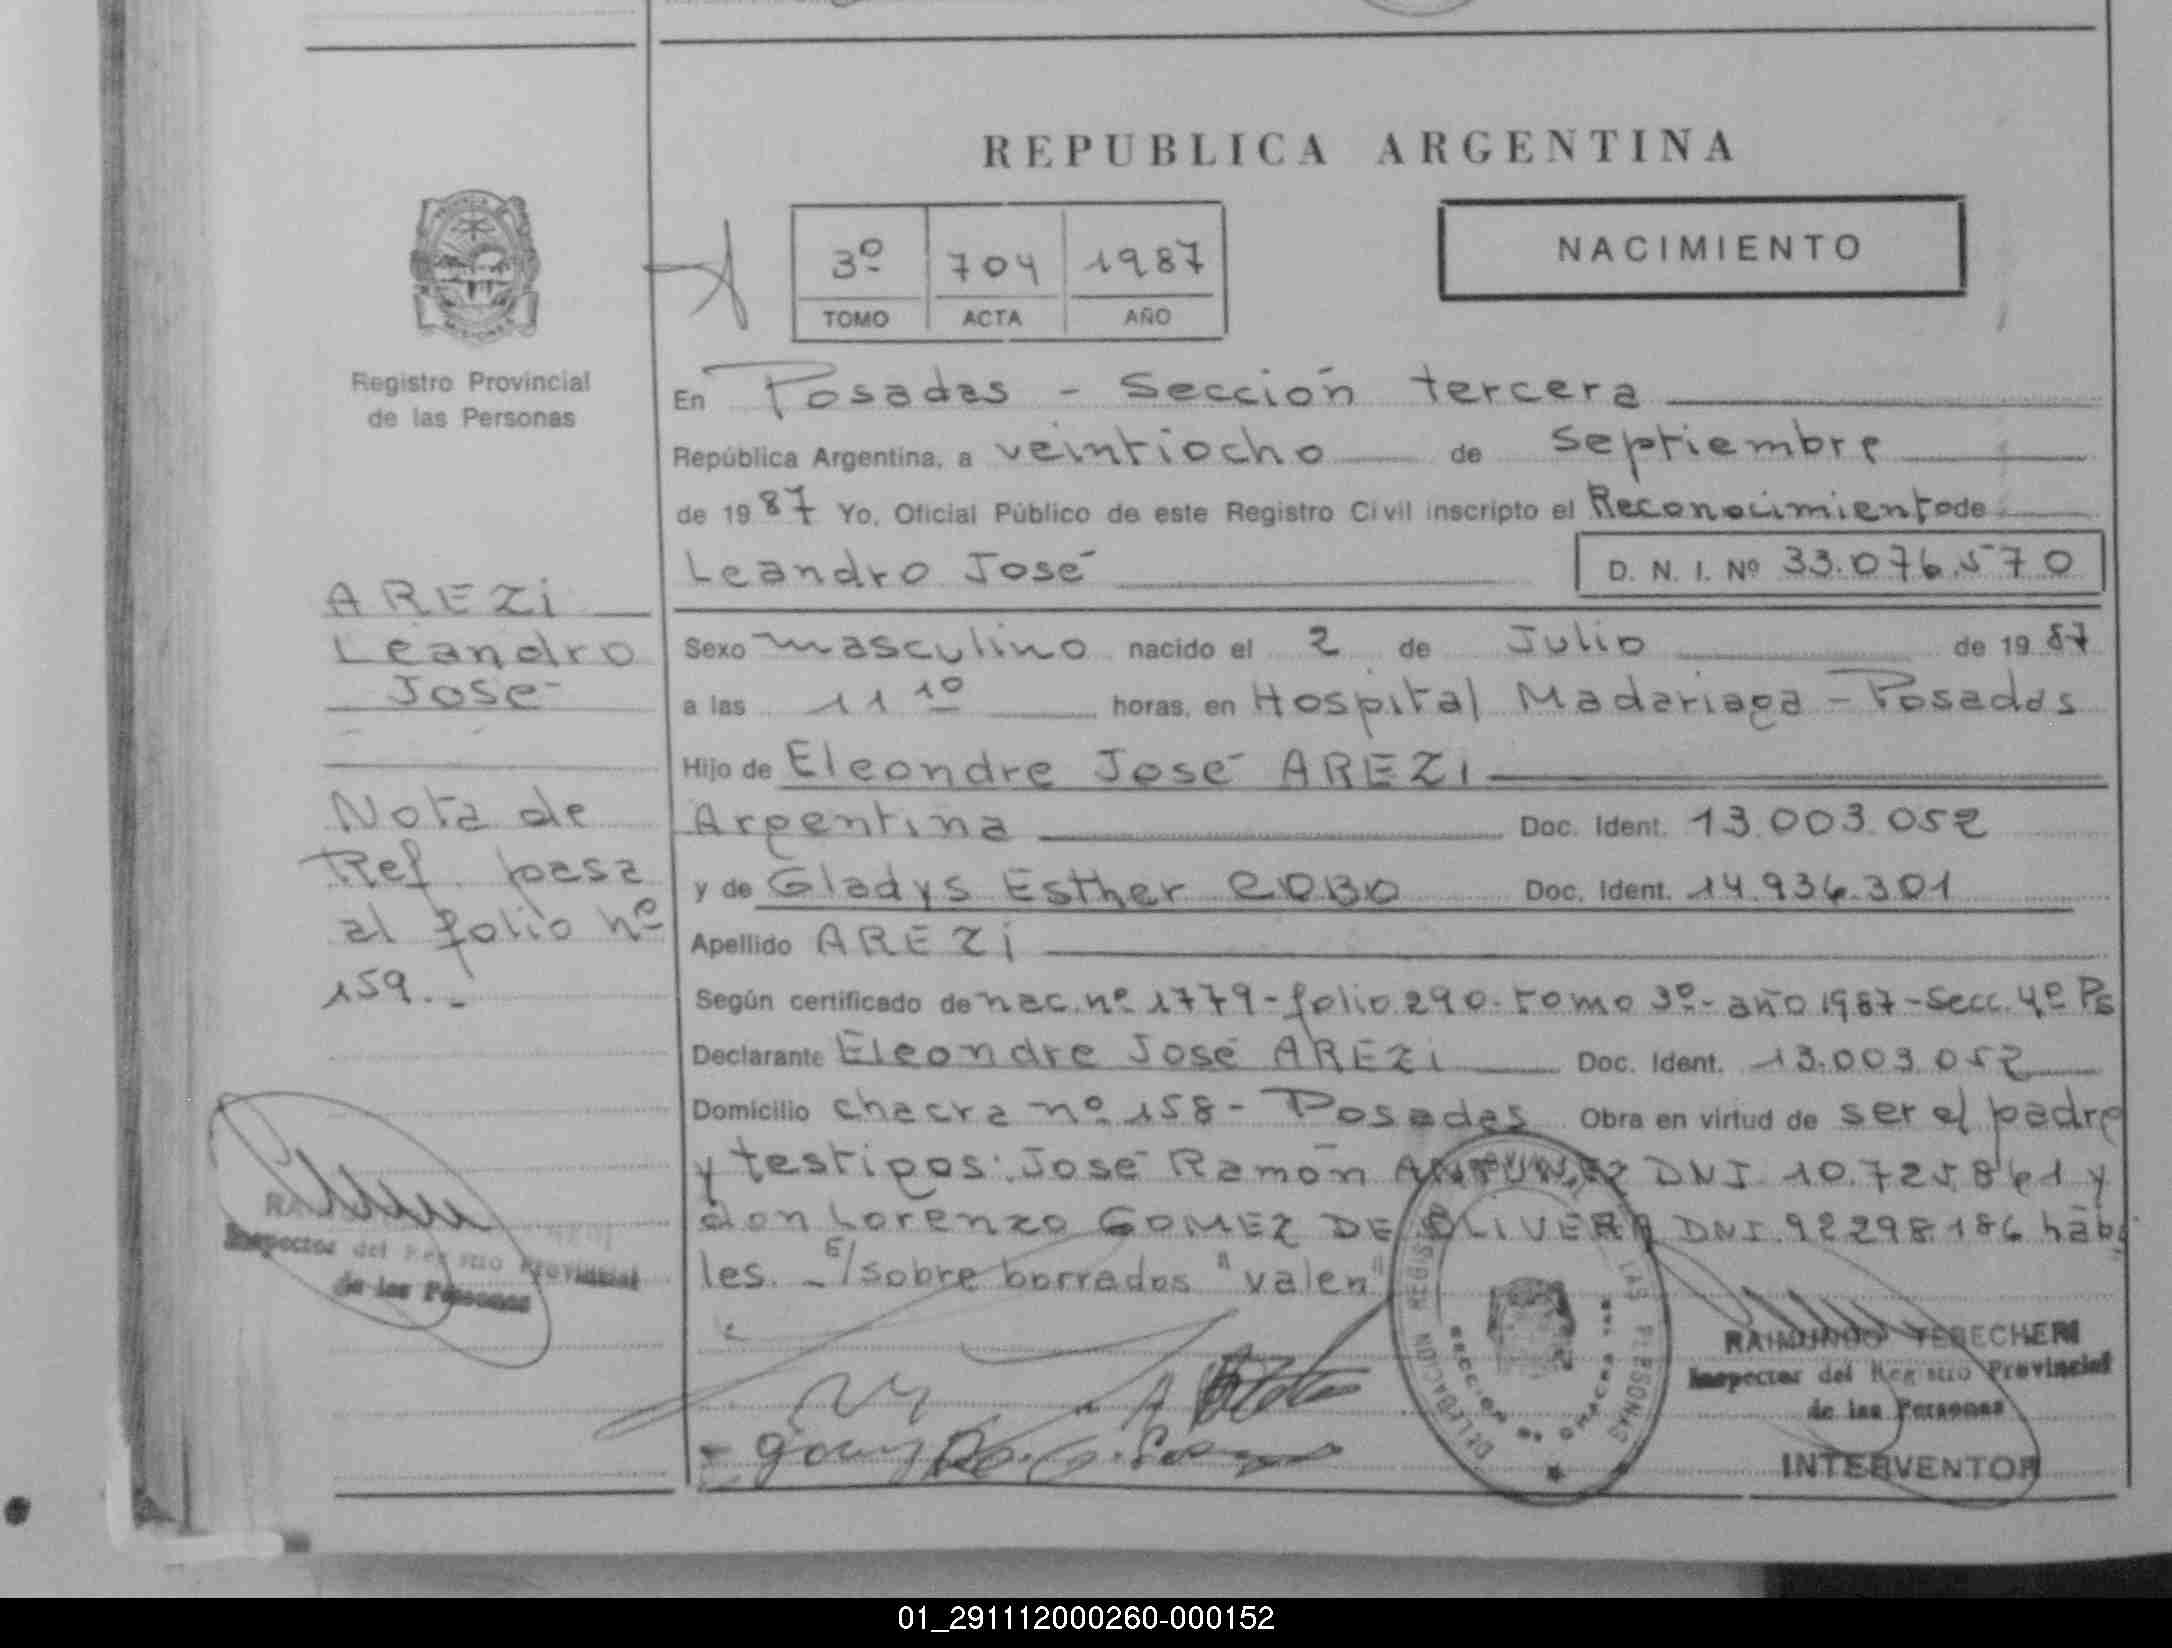 REPUBLICA ARGENTINA
3º 704 1987
TOMO ACTA AÑO
NACIMIENTO
Registro Provincial
de las Personas
En Posadas - Sección tercera
República Argentina, a veintiocho de septiembre
de 1987 Yo, Oficial Público de este Registro Civil inscripto el Reconocimiento de
Leandro José D. N. I. Nº 33.076.570
Sexo masculino nacido el 2 de Julio de 1987
a las 11 10 horas, en Hospital Madariaga - Posadas
Hijo de Eleondre José AREZI
Argentina Doc. Ident. 13.003.052
y de Gladys Esther COBO Doc. Ident. 14.936.301
Apellido AREZI
Según certificado de nac. nº 1779 - folio 290 - tomo 3º - año 1987 - Secc. 4º Ps
Declarante Eleondre José AREZI Doc. Ident. 13.003.052
Domicilio chacra nº 158 - Posadas Obra en virtud de ser el padre
y testigos: José Ramón ANTUNEZ DNI 10.725.861 y
don Lorenzo GOMEZ DE OLIVERA DNI. 92298.186 hábi
les. - s/sobre borrados "valen"
AREZI
Leandro
José
Nota de
Ref. pasa
al folio nº
159. -
Inspector del Registro Provincial
de las Personas
DELEGACION REGISTRO LAS PERSONAS
SECCION 3a CHACRA 158
RAIMUNDO YEBECHERI
Inspector del Registro Provincial
de las Personas
INTERVENTOR
01_291112000260-000152